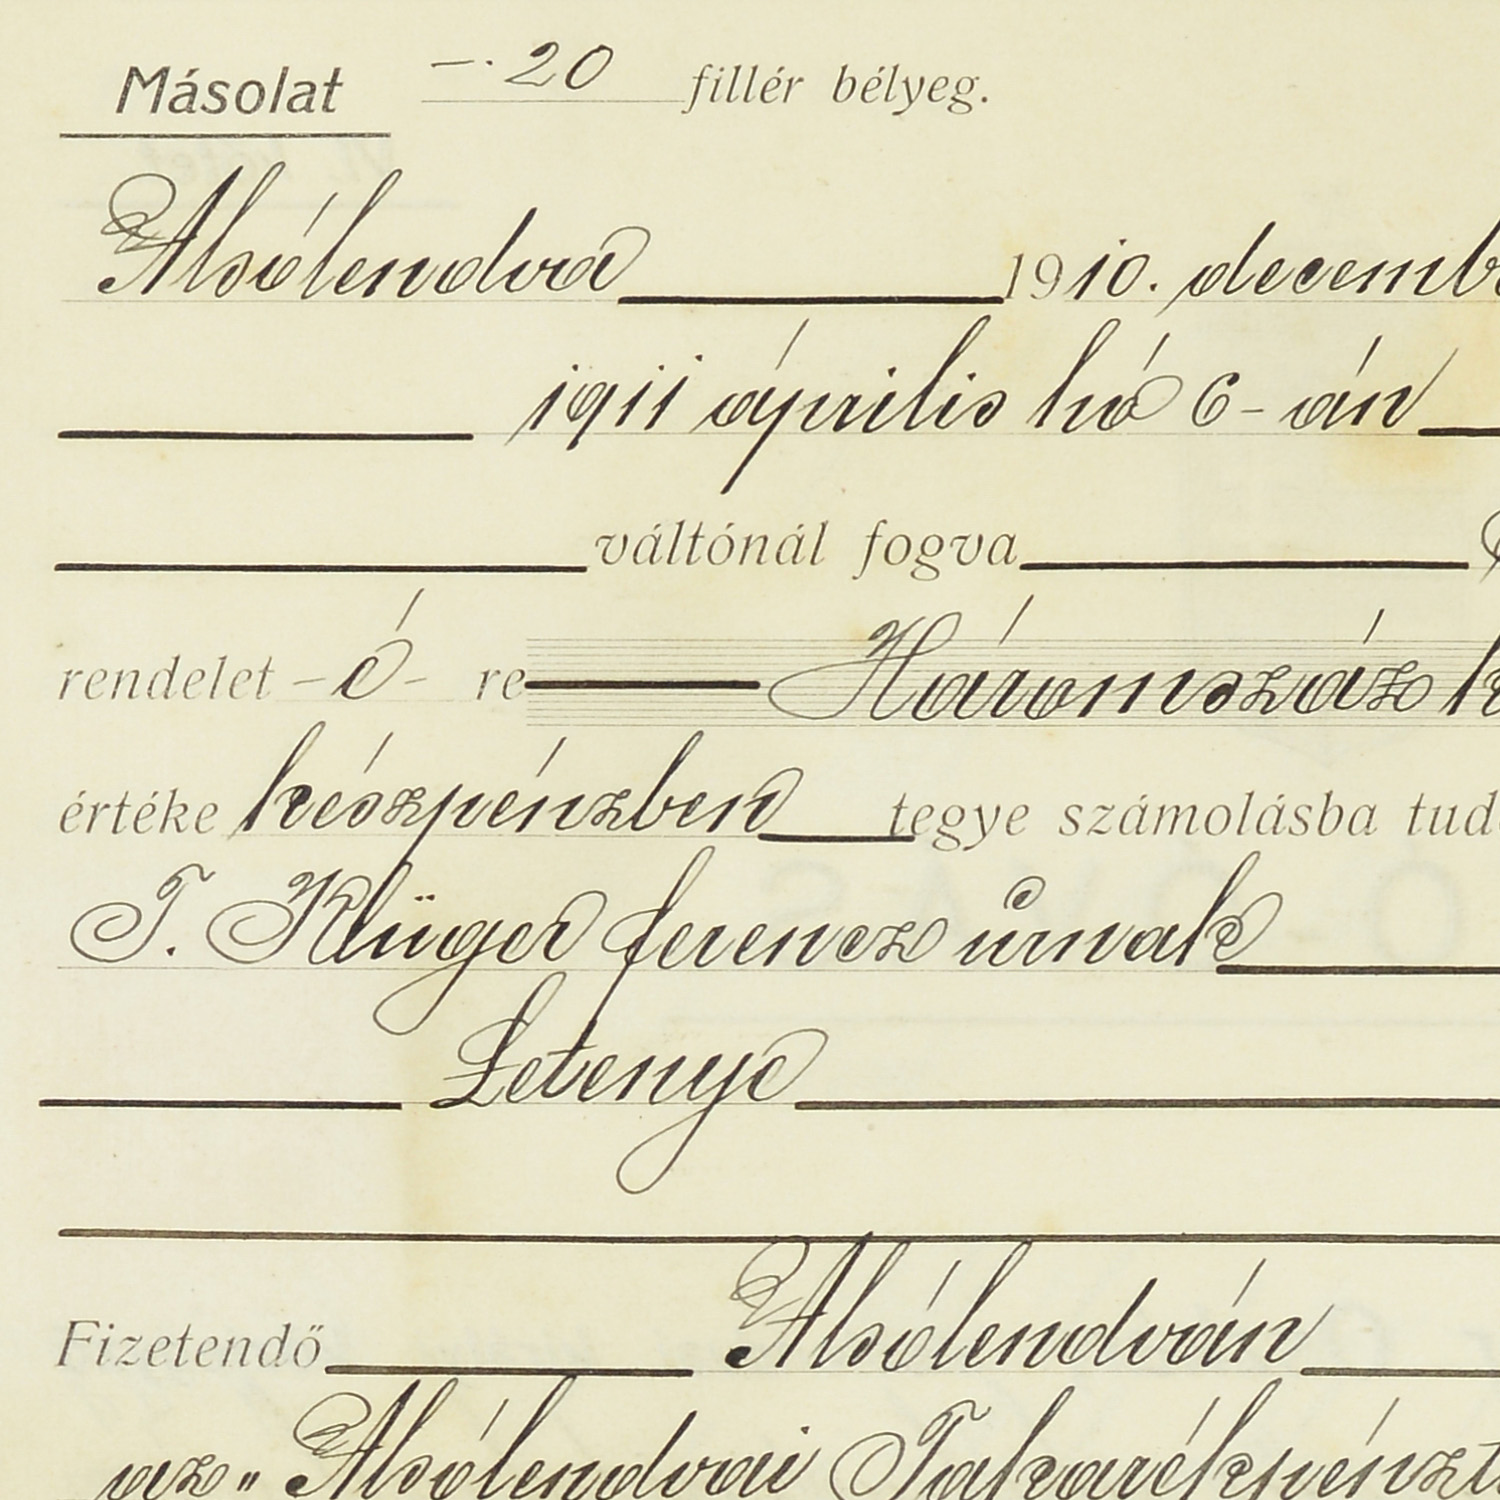 Másolat –.20 fillér bélyeg.
Alsólendva 1910. decemb
1911 április hó 6-án
váltónál fogva
rendelet –é– re Háromszáz k
értéke készpénzben tegye számolásba tud
T. Klüger ferencz úrnak
Letenye
Fizetendő Alsólendván
az „Alsólendvai Takarékpénzt